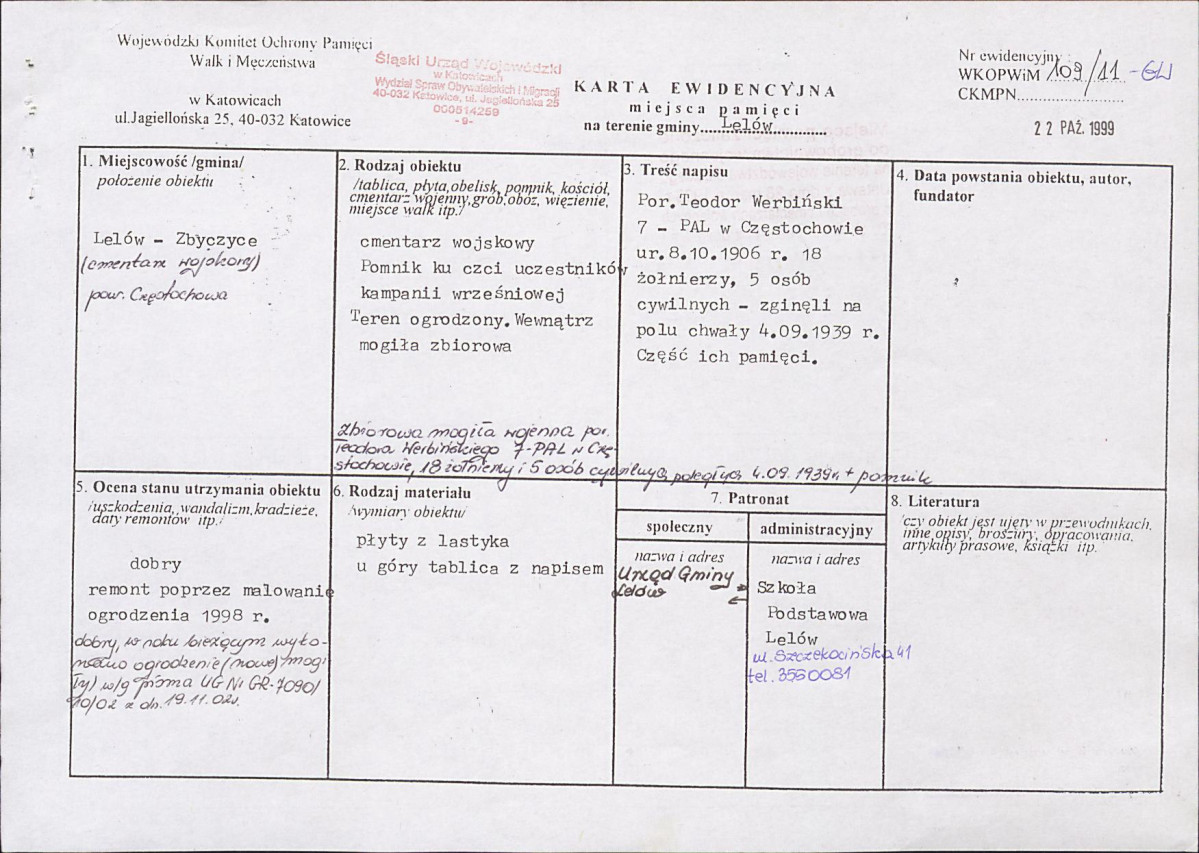 Wojewódzki Komitet Ochrony Pamięci
Walk i Męczeństwa
w Katowicach
ul.Jagiellońska 25, 40-032 Katowice
Śląski Urząd Wojewódzki
w Katowicach
Wydział Spraw Obywatelskich i Migracji
40-032 Katowice, ul. Jagiellońska 25
000514259
-9-
KARTA EWIDENCYJNA
miejsca pamięci
na terenie gminy.....Lelów.............
Nr ewidencyjny
WKOPWiM 109/11 -GW
CKMPN......................
22 PAŹ. 1999
1. Miejscowość /gmina/
położenie obiektu
Lelów - Zbyczyce
(cmentarz wojskowy)
pow. Częstochowa
2. Rodzaj obiektu
/tablica, płyta,obelisk, pomnik, kościół,
cmentarz wojenny,grób,obóz, więzienie,
miejsce walk itp./
cmentarz wojskowy
Pomnik ku czci uczestników
kampanii wrześniowej
Teren ogrodzony.Wewnątrz
mogiła zbiorowa
zbiorowa mogiła wojenna por.
Teodora Werbińskiego 7-PAL w Czę-
stochowie, 18 żołnierzy i 5 osób cywilnych poległych 4.09.1939r. + pomnik
3. Treść napisu
Por.Teodor Werbiński
7 - PAL w Częstochowie
ur.8.10.1906 r. 18
żołnierzy, 5 osób
cywilnych - zginęli na
polu chwały 4.09.1939 r.
Część ich pamięci.
4. Data powstania obiektu, autor,
fundator
5. Ocena stanu utrzymania obiektu
/uszkodzenia, wandalizm,kradzieże,
daty remontów itp./
dobry
remont poprzez malowanie
ogrodzenia 1998 r.
dobry, w roku bieżącym wyko-
nano ogrodzenie (nowe) mogi
ły) w/g pisma UG Nr GR-7090/
10/02 z dn. 19.11.02r.
6. Rodzaj materiału
/wymiary obiektu/
płyty z lastyka
u góry tablica z napisem
7. Patronat
społeczny
nazwa i adres
Urząd Gminy
Lelów
administracyjny
nazwa i adres
Szkoła
Podstawowa
Lelów
ul. Szczekocińska 41
tel. 3550081
8. Literatura
/czy obiekt jest ujęty w przewodnikach,
inne opisy, broszury, opracowania,
artykuły prasowe, książki itp.